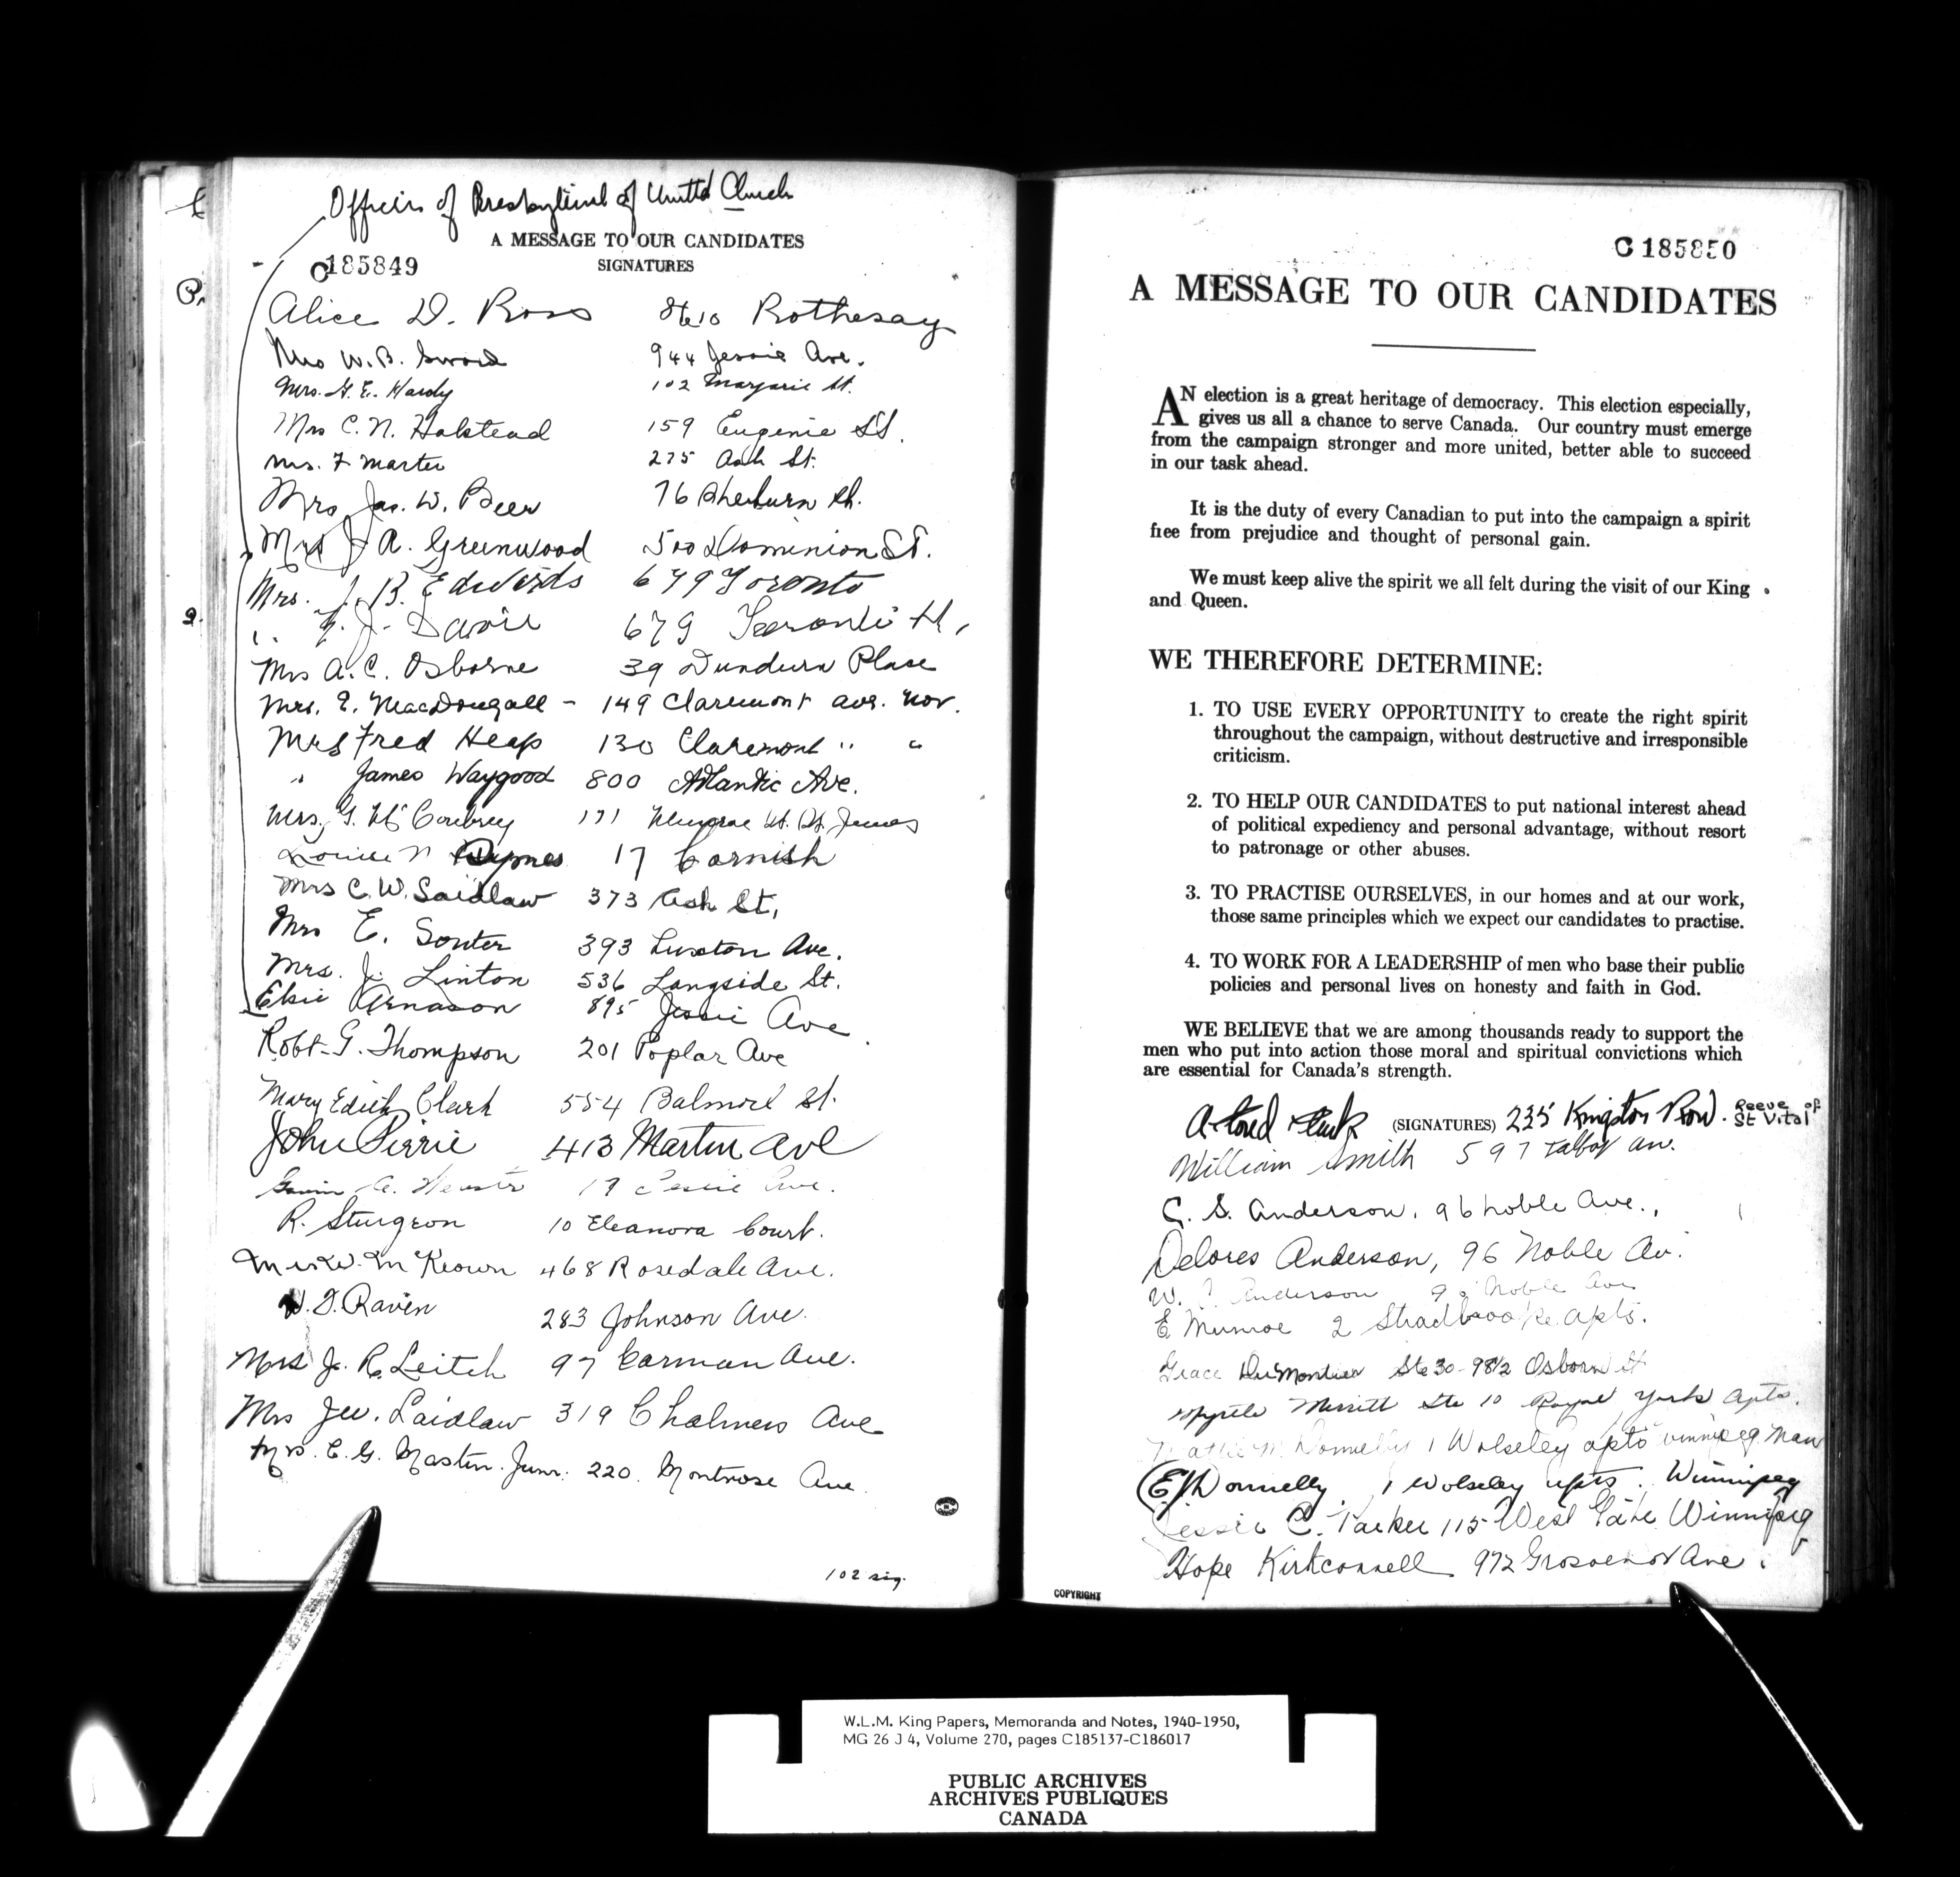 Officers of Presbyterial of United Church
A MESSAGE TO OUR CANDIDATES
C185849
SIGNATURES
Alice D. Ross Rothesay
Mrs W.B. Sword 944 Jessie Ave.
Mrs. G. E. Hardy 102 Marjorie St.
Mrs C. N. Halstead 159 Eugenie St.
Mrs. F Marter 275 Ash St.
Mrs Jas. W. Beer 76 Sherburn St.
Mrs J A. Greenwood 500 Dominion St.
Mrs. J. B. Edwards 679 Toronto
" J. 679 Toronto St,
Mrs A. C. Osborne 39 Dundurn Place
Mrs. E. MacDougall - 149 Claremont ave. Nor.
Mrs Fred Heap 130 Claremont " "
" James Waygood 800 Atlantic Ave.
Mrs. G. 171 St. St. James
Louise 17 Cornish
Mrs C. W. Laidlaw 373 Ash St,
Mrs E. Souter 393 Luxton Ave.
Mrs. J. Linton 536 Langside St.
Elsie Arnason 895 Jessie Ave
Robt. G. Thompson 201 Poplar Ave
Mary Edith Clark 554 Balmoral St.
John Pirrie 413 Martin Ave
A. 19 Ave.
R. Sturgeon 10 Eleanora Court.
McKeown 468 Rosedale Ave.
W. J. Raven 283 Johnson Ave.
Mrs J. R. Leitch 97 Carman Ave.
Mrs Jew. Laidlaw 319 Chalmers Ave
Mrs. E. G. Mastin. Junr. 220. Montrose Ave.
102 sig.
C 185850
A MESSAGE TO OUR CANDIDATES
AN election is a great heritage of democracy. This election especially,
gives us all a chance to serve Canada. Our country must emerge
from the campaign stronger and more united, better able to succeed
in our task ahead.
It is the duty of every Canadian to put into the campaign a spirit
free from prejudice and thought of personal gain.
We must keep alive the spirit we all felt during the visit of our King
and Queen.
WE THEREFORE DETERMINE:
1. TO USE EVERY OPPORTUNITY to create the right spirit
throughout the campaign, without destructive and irresponsible
criticism.
2. TO HELP OUR CANDIDATES to put national interest ahead
of political expediency and personal advantage, without resort
to patronage or other abuses.
3. TO PRACTISE OURSELVES, in our homes and at our work,
those same principles which we expect our candidates to practise.
4. TO WORK FOR A LEADERSHIP of men who base their public
policies and personal lives on honesty and faith in God.
WE BELIEVE that we are among thousands ready to support the
men who put into action those moral and spiritual convictions which
are essential for Canada's strength.
(SIGNATURES) 235 Kingston Row. Reeve of
St Vital
William Smith 597 Talbot av.
C. S. Anderson, 96 Noble Ave.,
Delores Anderson, 96 Noble Av.
W. Anderson Noble Ave
E. Munroe 2 Stradbrooke Apts.
Grace Ste 30 - 98½ Osborn St
Myrtle Merritt Ste 10 Royal York Apts.
Donnelly 1 Wolseley apts Winnipeg Man
E Donnelly 1 Wolseley apts. Winnipeg
Jessie C. Parker 115 West Gate Winnipeg
Hope Kirkconnell 972 Grosvenor Ave.
COPYRIGHT
W.L.M. King Papers, Memoranda and Notes, 1940-1950,
MG 26 J 4, Volume 270, pages C185137-C186017
PUBLIC ARCHIVES
ARCHIVES PUBLIQUES
CANADA